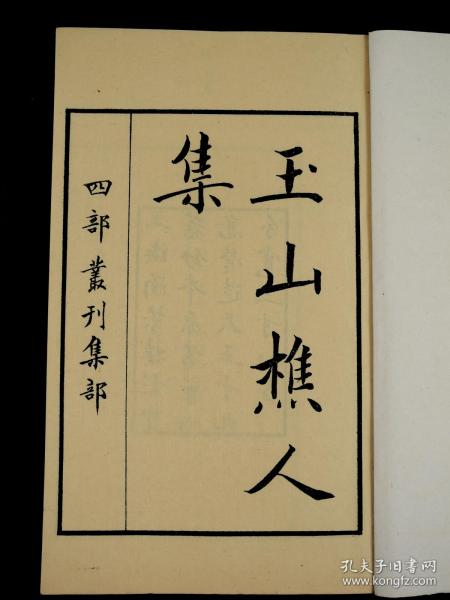 玉山樵人
集
四部叢刊集部
孔夫子旧书网
www.kongfz.com